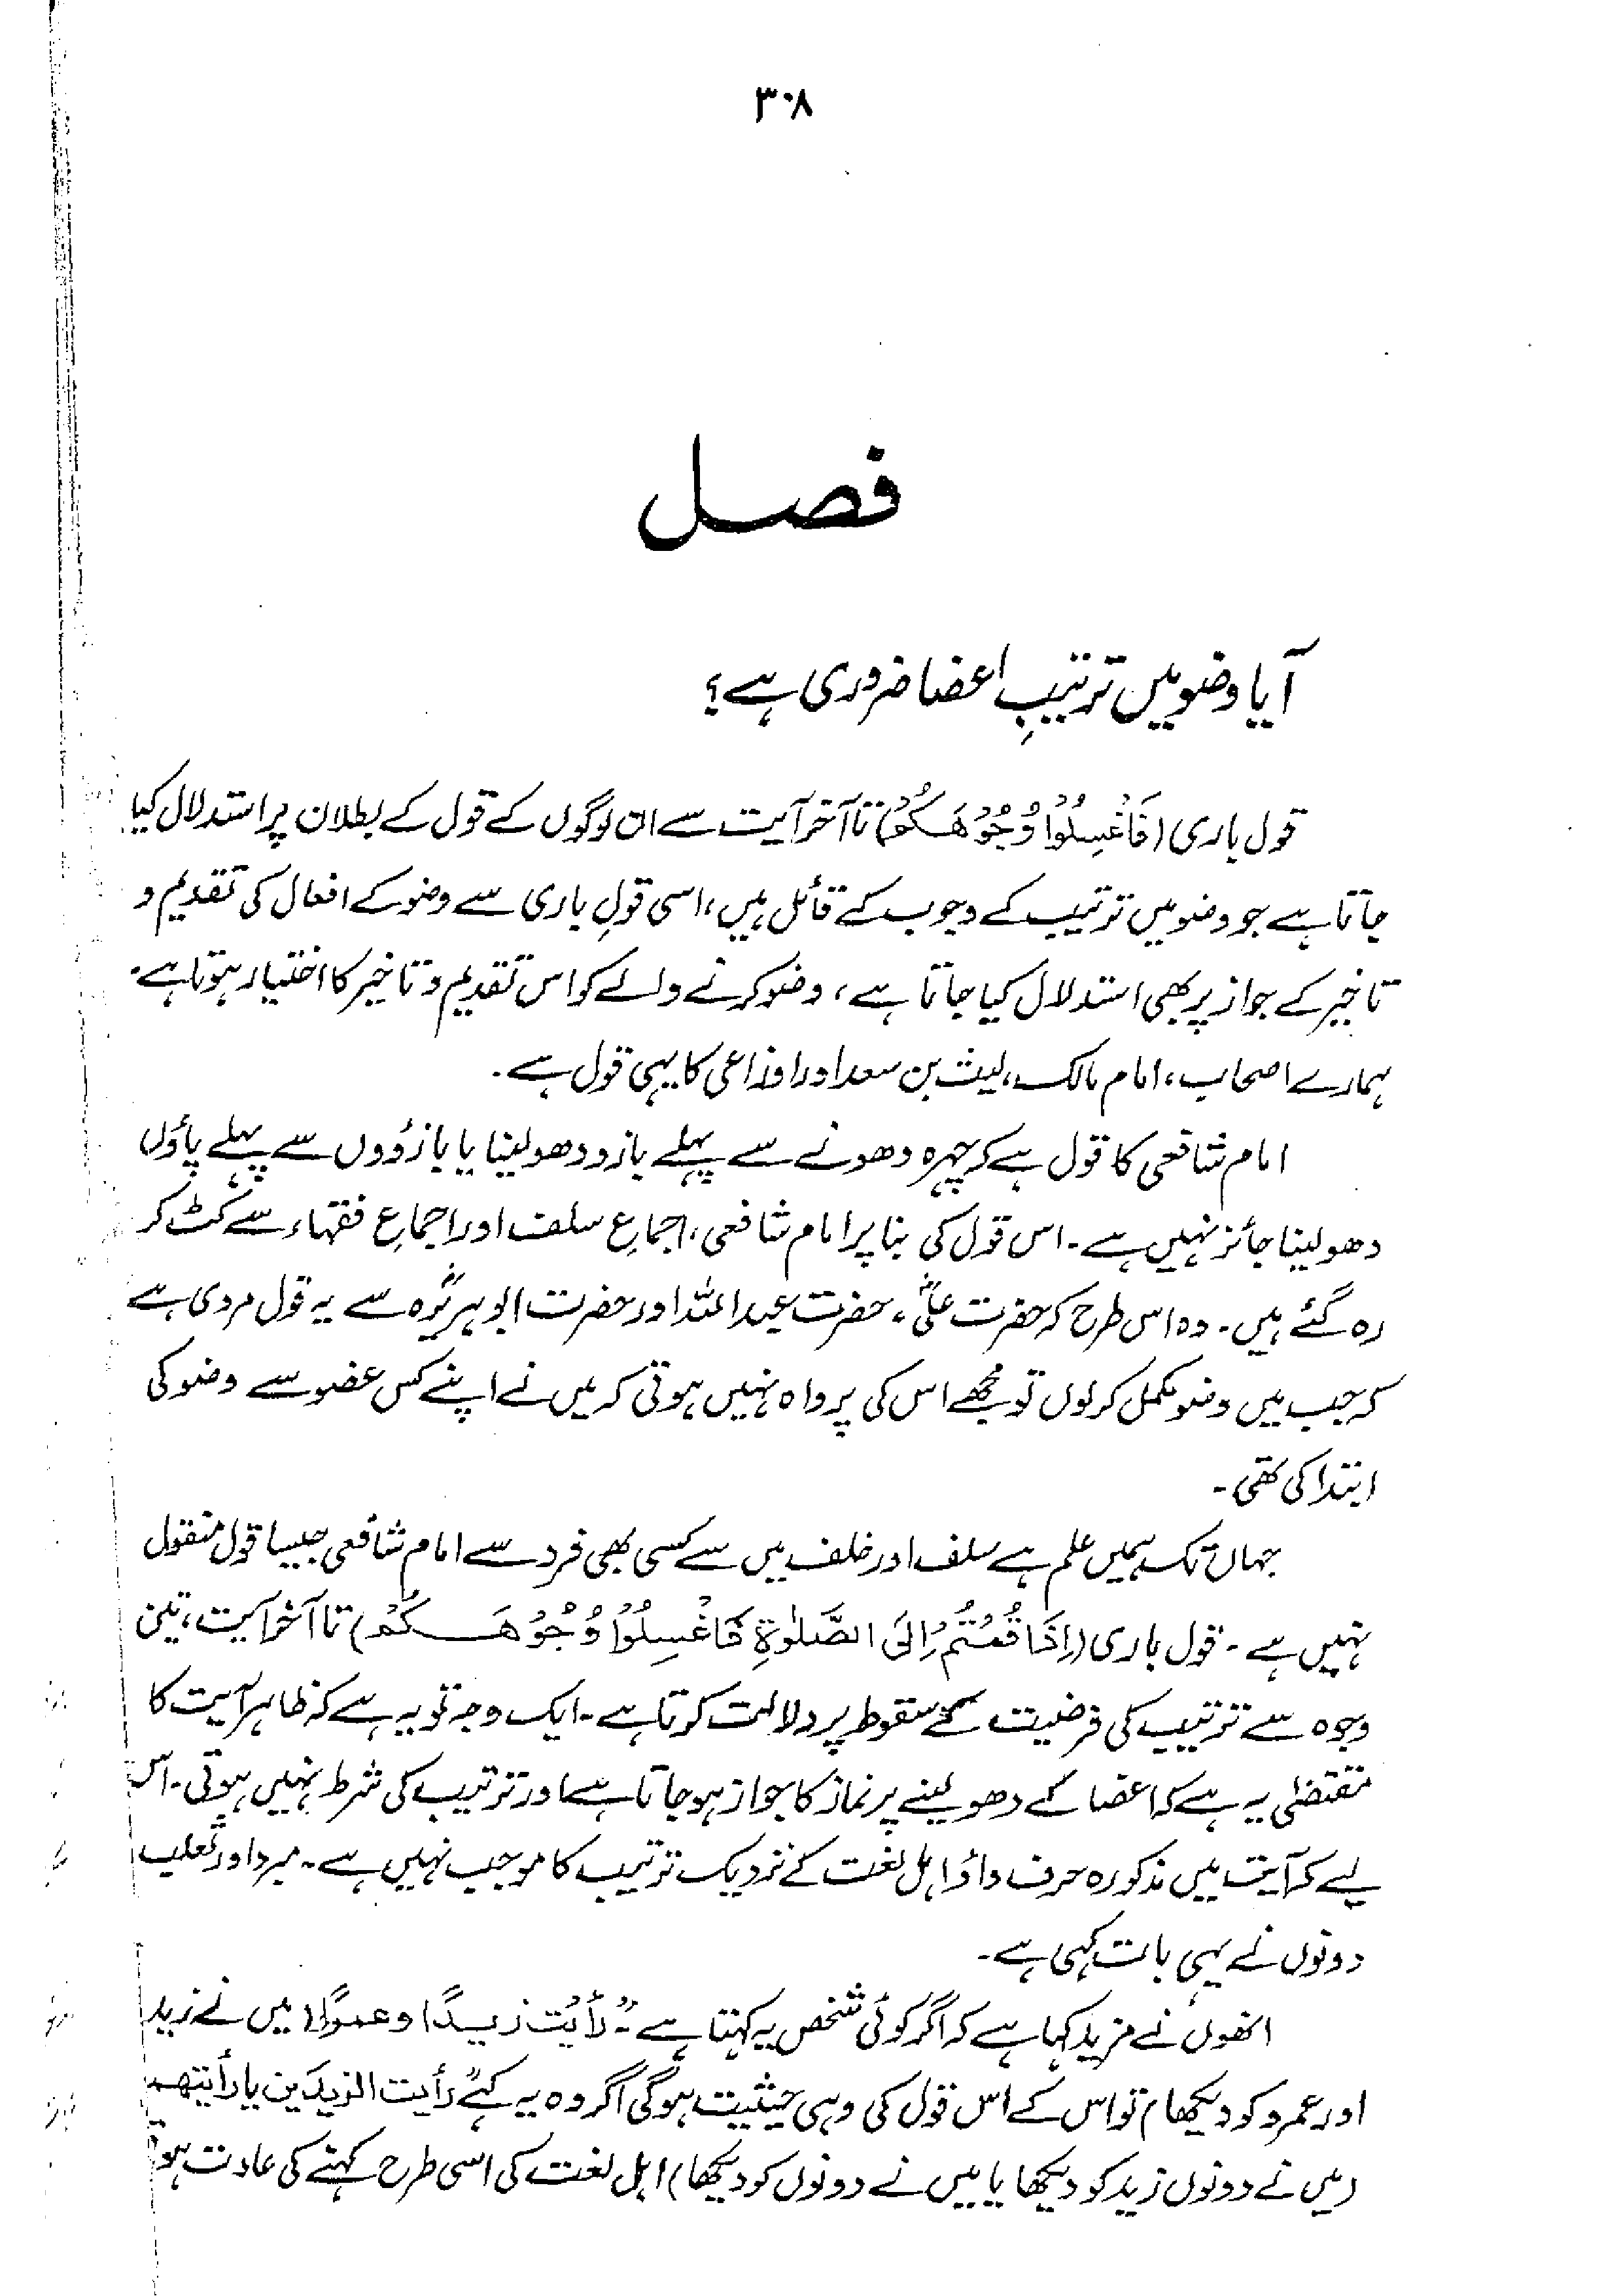 ۳۰۸
فصل
آیا وضو میں ترتیبِ اعضا ضروری ہے؟
قول باری (فَاغْسِلُوْا وُجُوْهَكُمْ) تا آخر آیت سے ان لوگوں کے قول کے بطلان پر استدلال کیا
جاتا ہے جو وضو میں ترتیب کے وجوب کے قائل ہیں، اسی قولِ باری سے وضو کے افعال کی تقدیم و
تاخیر کے جواز پر بھی استدلال کیا جاتا ہے، وضو کرنے والے کو اس تقدیم و تاخیر کا اختیار ہوتا ہے۔
ہمارے اصحاب، امام مالک، لیث بن سعد اور اوزاعی کا یہی قول ہے۔
امام شافعی کا قول ہے کہ چہرہ دھونے سے پہلے بازو دھو لینا یا بازوؤں سے پہلے پاؤں
دھو لینا جائز نہیں ہے۔ اس قول کی بنا پر امام شافعی، اجماعِ سلف اور اجماعِ فقہاء سے کٹ کر
رہ گئے ہیں۔ وہ اس طرح کہ حضرت علیؓ، حضرت عبداللہ اور حضرت ابوہریرہؓ سے یہ قول مروی ہے
کہ جب میں وضو مکمل کرلوں تو مجھے اس کی پرواہ نہیں ہوتی کہ میں نے اپنے کس عضو سے وضو کی
ابتدا کی تھی۔
جہاں تک ہمیں علم ہے سلف اور خلف میں سے کسی بھی فرد سے امام شافعی جیسا قول منقول
نہیں ہے۔ قول باری (اِذَا قُمْتُمْ اِلَی الصَّلٰوةِ فَاغْسِلُوْا وُجُوْهَكُمْ) تا آخر آیت، تین
وجوہ سے ترتیب کی فرضیت کے سقوط پر دلالت کرتا ہے۔ ایک وجہ تو یہ ہے کہ ظاہر آیت کا
مقتضٰی یہ ہے کہ اعضا کے دھو لینے پر نماز کا جواز ہو جاتا ہے اور ترتیب کی شرط نہیں ہوتی۔ اس
لیے کہ آیت میں مذکورہ حرف واؤ اہل لغت کے نزدیک ترتیب کا موجب نہیں ہے۔ مبرد اور ثعلب
دونوں نے یہی بات کہی ہے۔
انھوں نے مزید کہا ہے کہ اگر کوئی شخص یہ کہتا ہے "رأیت زیدًا و عمرًا (میں نے زید
اور عمرو کو دیکھا) تو اس کے اس قول کی وہی حیثیت ہوگی اگر وہ یہ کہے "رأیت الزیدَین یا رأیتهما
(میں نے دونوں زید کو دیکھا یا میں نے دونوں کو دیکھا) اہل لغت کی اسی طرح کہنے کی عادت ہو